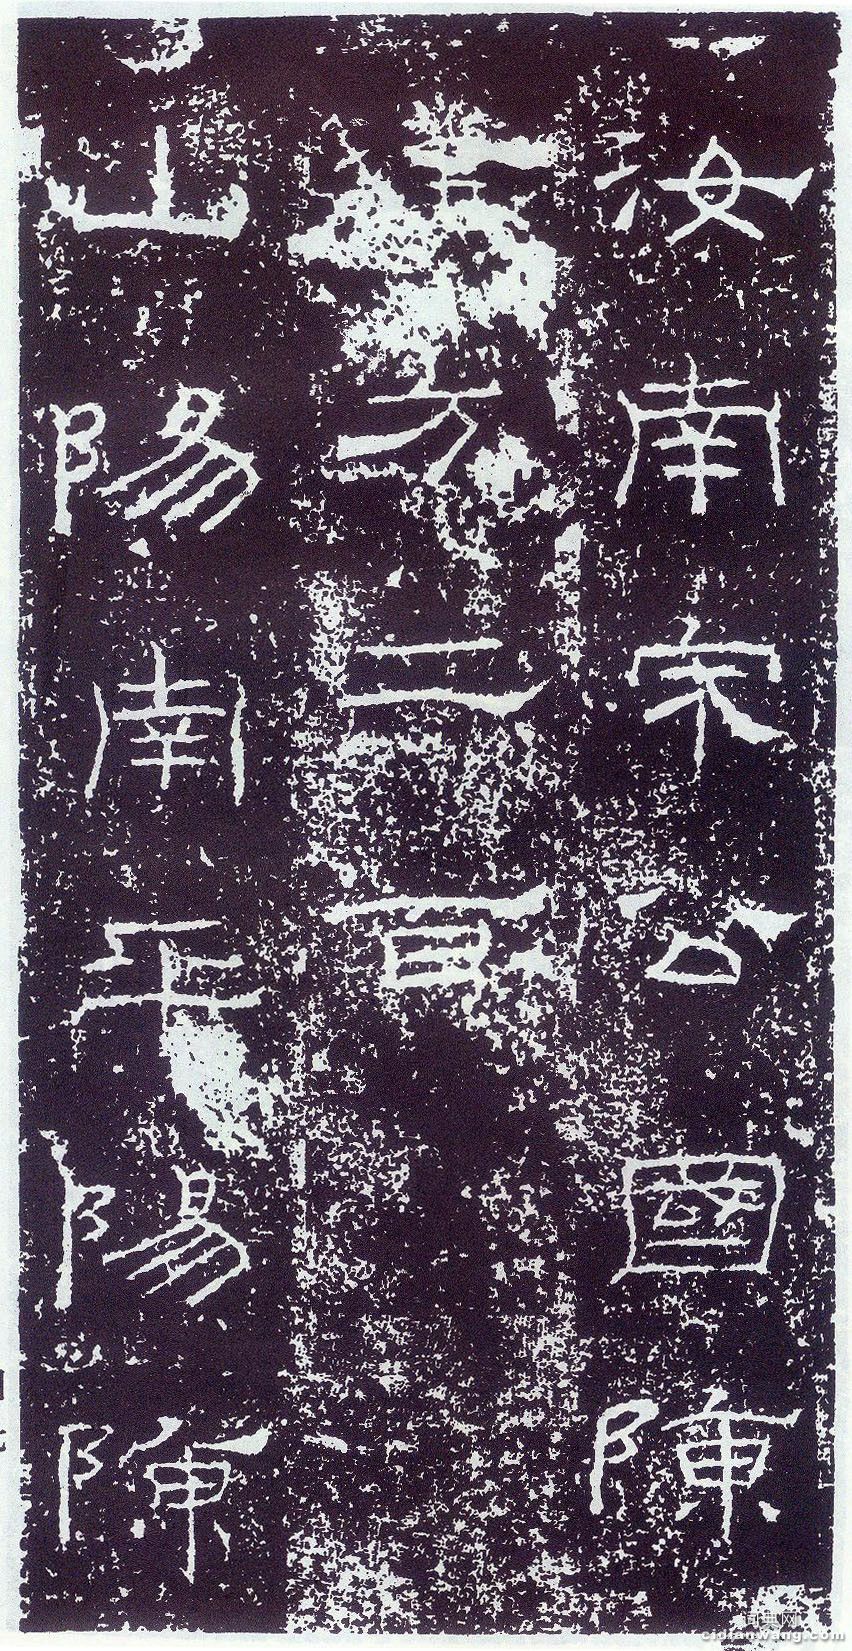 汝南宋公國陳
方二百
山陽南平陽陳
词典网
cidianwang.com